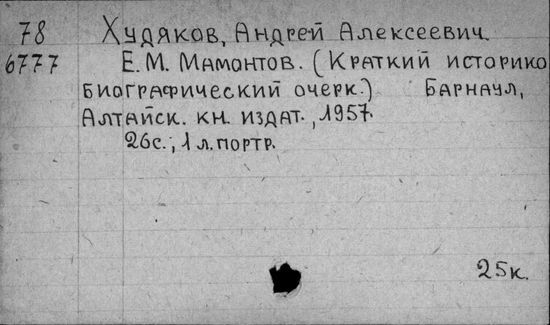 78 Худяков, Андрей Алексеевич.
6777 Е.М. Мамонтов. (Краткий историко
биографический очерк.) Барнаул,
Алтайск. кн. издат., 1957.
26с.; 1 л. портр.
25к.